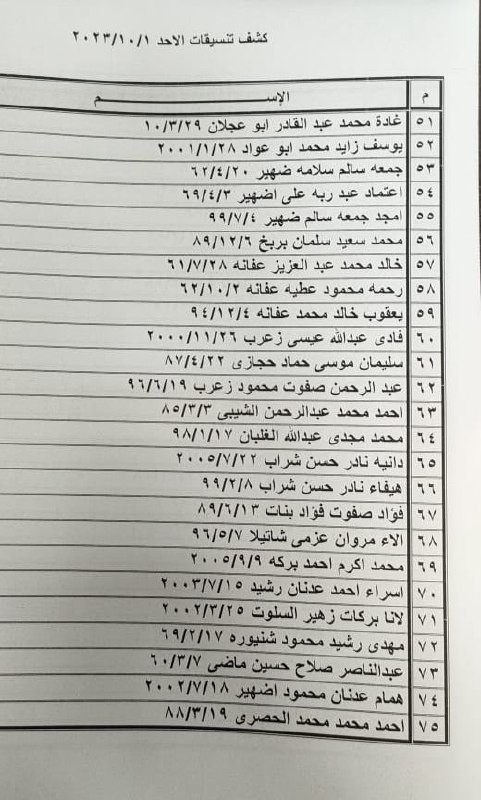 كشف تنسيقات الاحد ٢٠٢٣/١٠/١
م الإســـــــــم
٥١ غادة محمد عبد القادر ابو عجلان ١٠/٣/٢٩
٥٢ يوسف زايد محمد ابو عواد ٢٠٠١/١/٢٨
٥٣ جمعه سالم سلامه ضهير ٦٢/٤/٢٠
٥٤ اعتماد عبد ربه على اضهير ٦٩/٤/٣
٥٥ امجد جمعه سالم ضهير ٩٩/٧/٤
٥٦ محمد سعيد سلمان بربخ ٨٩/١٢/٦
٥٧ خالد محمد عبد العزيز عفانه ٦١/٧/٢٨
٥٨ رحمه محمود عطيه عفانه ٦٢/١٠/٢
٥٩ يعقوب خالد محمد عفانه ٩٤/١٢/٤
٦٠ فادى عبدالله عيسى زعرب ٢٠٠٠/١١/٢٦
٦١ سليمان موسى حماد حجازى ٨٧/٤/٢٢
٦٢ عبد الرحمن صفوت محمود زعرب ٩٦/٦/١٩
٦٣ احمد محمد عبدالرحمن الشيبى ٨٥/٣/٣
٦٤ محمد مجدى عبدالله الغلبان ٩٨/١/١٧
٦٥ دانيه نادر حسن شراب ٢٠٠٥/٧/٢٢
٦٦ هيفاء نادر حسن شراب ٩٩/٢/٨
٦٧ فؤاد صفوت فؤاد بنات ٨٩/٦/١٣
٦٨ الاء مروان عزمى شاتيلا ٩٦/٥/٧
٦٩ محمد اكرم احمد بركه ٢٠٠٥/٩/٩
٧٠ اسراء احمد عدنان رشيد ٢٠٠٣/٧/١٥
٧١ لانا بركات زهير السلوت ٢٠٠٢/٣/٢٥
٧٢ مهدى رشيد محمود شنيوره ٦٩/٢/١٧
٧٣ عبدالناصر صلاح حسين ماضى ٦٠/٣/٧
٧٤ همام عدنان محمود اضهير ٢٠٠٢/٧/١٨
٧٥ احمد محمد محمد الحصرى ٨٨/٣/١٩